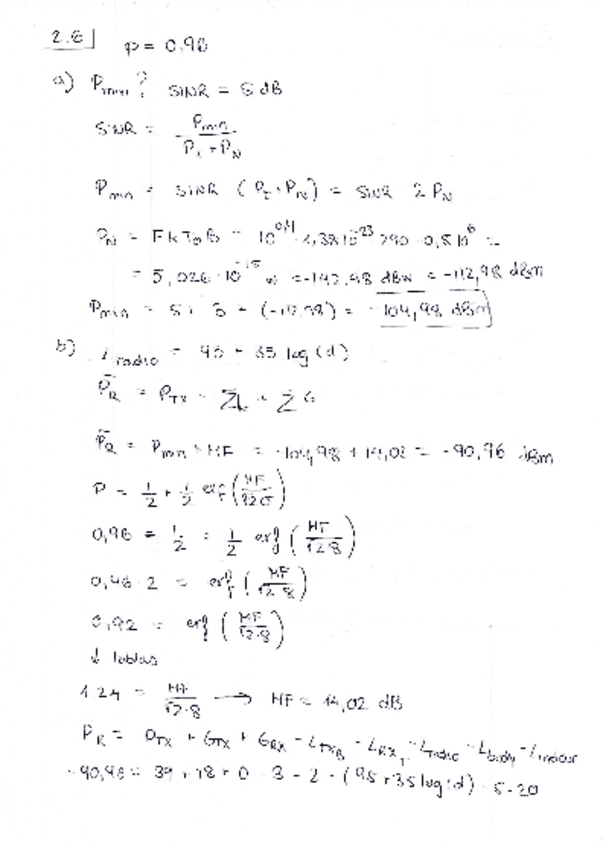 2.6
p = 0,96
a) Pmin? SINR = 5 dB
SINR = Pmin / PI + PN
Pmin = SINR (PI + PN) = SINR 2 PN
PN = FKToB = 10^0,4 · 1,38·10^-23 · 290 · 0,5·10^6 =
= 5,026 · 10^-15 w = -142,98 dBw = -112,98 dBm
Pmin = 5 + 3 + = -104,98 dBm
b) Lradio = 95 + 35 log (d)
PR = PTX - ΣL + ΣG
PR = Pmin + MF = -104,98 + 14,02 = -90,96 dBm
P = 1/2 + 1/2 erf (MF / √2 σ)
0,96 = 1/2 = 1/2 erf (MF / √2·8)
0,46·2 = erf (MF / √2·8)
0,92 = erf (MF / √2·8)
↓ tablas
1.24 = MF / √2·8 → MF = 14,02 dB
PR = PTX + GTX + GRX - LTXB - LRXT - Lradio - Lbody - Lindoor
-90,96 = 39 + 18 + 0 - 3 - 2 - (95 + 35 log (d)) - 5 - 20